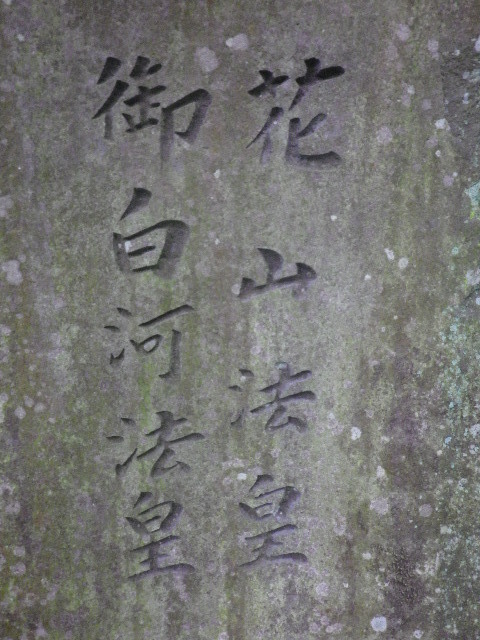 花山法皇
御白河法皇